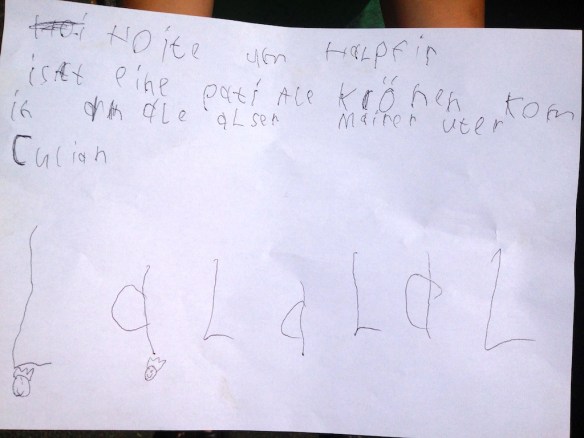 Hoite um Halpfir
isTt eine pati Ale Könen Kom
in ale alser Mainer uter
Culian
LaLaLaL